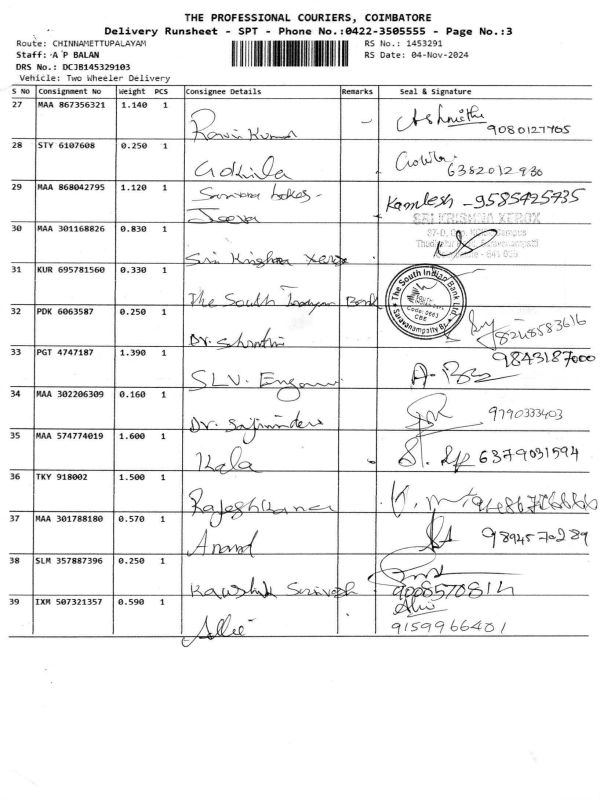 THE PROFESSIONAL COURIERS, COIMBATORE
Delivery Runsheet - SPT - Phone No.:0422-3505555 - Page No.:3
Route: CHINNAMETTUPALAYAM RS No.: 1453291
Staff: A P BALAN RS Date: 04-Nov-2024
DRS No.: DCJB145329103
Vehicle: Two Wheeler Delivery
S No Consignment No Weight PCS Consignee Details Remarks Seal & Signature
27 MAA 867356321 1.140 1
Ravi Kumar 9080127765
28 STY 6107608 0.250 1
Gokila Gokila 6382012930
29 MAA 868042795 1.120 1
Jeeva Kamlesh - 9585425735
SRI KRISHNA XEROX
30 MAA 301168826 0.830 1
Sri Krishna Xerox
31 KUR 695781560 0.330 1
The South Indian Bank The South Indian Bank Ltd. Saravanampatty Br. CBE
32 PDK 6063587 0.250 1
Dr. Shruthi 8248583616
33 PGT 4747187 1.390 1 9843187000
SLV. Engg
34 MAA 302206309 0.160 1
Dr. 9790333403
35 MAA 574774019 1.600 1
Kala 6379031594
36 TKY 918002 1.500 1
Rajeshkumar
37 MAA 301788180 0.570 1
Anand 9894570289
38 SLM 357887396 0.250 1
Kaushik 9008570814
39 IXM 507321357 0.590 1
9159966401